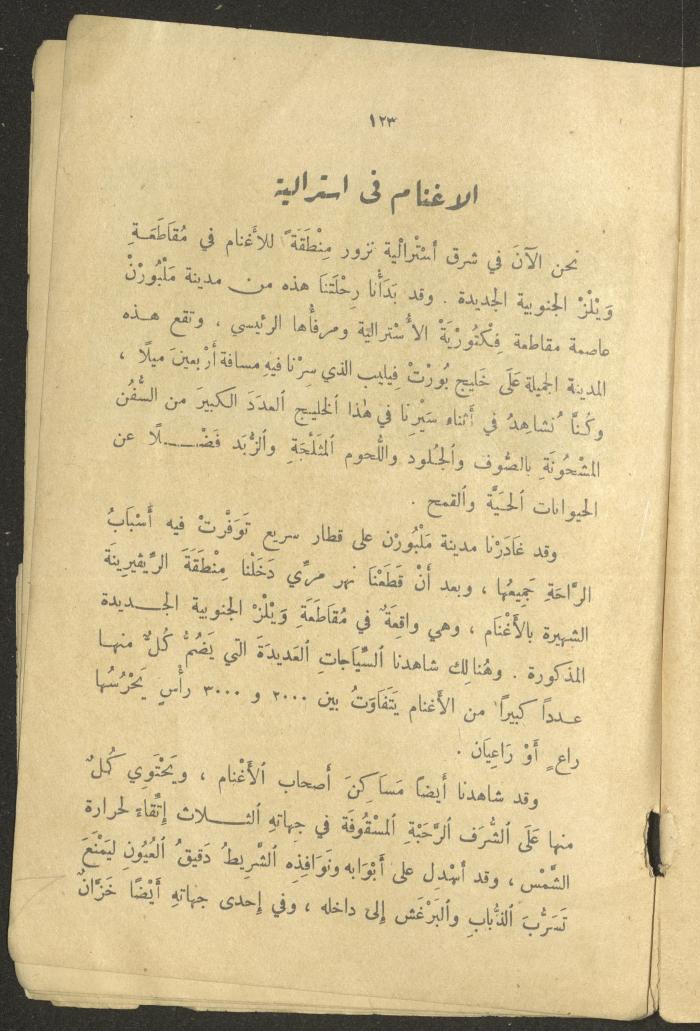 ١٢٣
الاغنام في استرالية
نحن الآنَ في شرق أُسْتْرالْية نزور مِنْطَقَةً للأَغنام في مُقَاطَعَـةِ
وَيْلْزْ الجنوبية الجديدة . وقد بَدَأْنا رِحْلَتَنَا هذه من مدينة مَلْبُورْنْ
عاصمة مقاطعة فِكْتُورْيَةْ الأُسْتراليَة ومرفُأها الرئيسي ، وتقع هـذه
المدينة الجميلة عَلَى خَليج بُورْتْ فِيليب الذي سِرْنا فيهِ مسافة أَرْبعينَ ميلًا ،
وكُنَّا نُشاهِدُ في أَثناءِ سَيْرِنا في هٰذا ٱلخليج ٱلعدَدَ الكبيرَ من السُّفُن
المَشْحُونَةِ بالصُّوف وٱلجُـلود واللُّحوم ٱلمُثلَّجَةِ وٱلزُّبَد فَضْـــلًا عن
الحيوانات ٱلحَيَّة وٱلقمح .
وقد غادَرْنا مدينة مَلْبُورْن على قطار سريع تَوَفَّرتْ فيه أَسْبَابُ
الرَّاحَةِ جَمِيعُها ، وبعد أَنْ قَطَعْنَا نهر مرِّي دَخَلْنا مِنْطَقَةَ الرِّيفيرينَة
الشهيرة بالأَغْنام ، وهي واقِعَةٌ في مُقاطَعَةِ وَيْلْزْ الجنوبية الجـديدة
المذكورة . وهُنالِك شاهدنا ٱلسِّيَاجاتِ ٱلعَديدَةَ التي يَضُمُّ كُلٌّ منهـا
عـدداً كبيراً من الأَغنام يَتَفَاوَتُ بين ٢٠٠٠ و ٣٠٠٠ رأْسٍ يَحْرُسُها
راعٍ أَوْ رَاعِيَان .
وقد شاهدنا أَيضاً مَسَاكِنَ أَصحاب ٱلأَغْنام ، ويَحْتَوِي كُلٌّ
منها عَلَى ٱلشُّرَف ٱلرَّحْبَةِ ٱلمَسْقُوفَة في جِهاتِهِ ٱلثــلاث إِتِّقاءً لحرارة
الشَّمْس ، وقد أُسْدِل على أَبْوَابه ونَوَافِذِه ٱلشَّرِيطُ دَقيقُ ٱلعُيُونِ لِيَمْنَعَ
تَسَرُّبَ ٱلذُّبابِ وٱلبَرْغَش إِلى داخله ، وفي إِحدى جهاتهِ أَيْضًا خَزَّانٌ